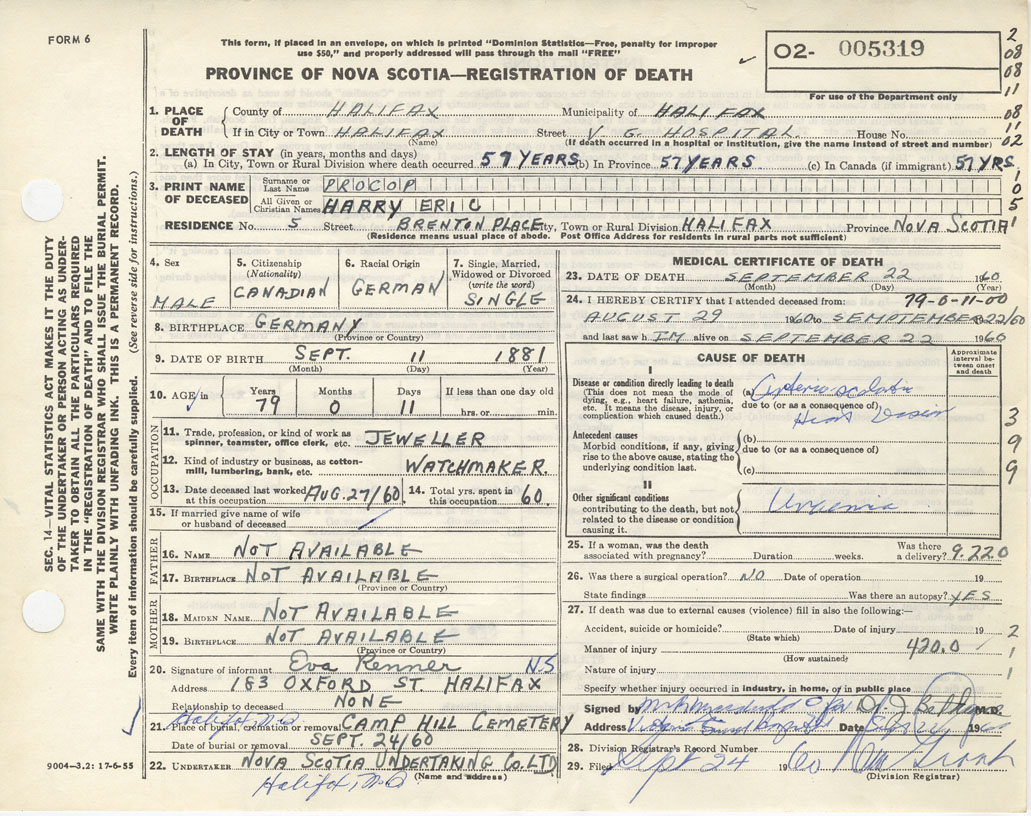 FORM 6
This form, if placed in an envelope, on which is printed "Dominion Statistics—Free, penalty for improper
use $50," and properly addressed will pass through the mail "FREE"
O2- 005319
For use of the Department only
PROVINCE OF NOVA SCOTIA—REGISTRATION OF DEATH
2
08
08
11
08
11
02
1
0
5
1
SEC. 14—VITAL STATISTICS ACT MAKES IT THE DUTY
OF THE UNDERTAKER OR PERSON ACTING AS UNDER-
TAKER TO OBTAIN ALL THE PARTICULARS REQUIRED
IN THE "REGISTRATION OF DEATH" AND TO FILE THE
SAME WITH THE DIVISION REGISTRAR WHO SHALL ISSUE THE BURIAL PERMIT.
WRITE PLAINLY WITH UNFADING INK. THIS IS A PERMANENT RECORD.
Every item of information should be carefully supplied. (See reverse side for instructions.)
1. PLACE OF DEATH
County of HALIFAX Municipality of HALIFAX
If in City or Town HALIFAX Street V. G. HOSPITAL. House No.
(Name) (If death occurred in a hospital or institution, give the name instead of street and number)
2. LENGTH OF STAY (in years, months and days)
(a) In City, Town or Rural Division where death occurred 57 YEARS (b) In Province 57 YEARS (c) In Canada (if immigrant) 57 YRS
3. PRINT NAME OF DECEASED
Surname or Last Name PROCOP
All Given or Christian Names HARRY ERIC
RESIDENCE No. 5 Street BRENTON PLACE City, Town or Rural Division HALIFAX Province NOVA SCOTIA
(Residence means usual place of abode. Post Office Address for residents in rural parts not sufficient)
4. Sex MALE
5. Citizenship (Nationality) CANADIAN
6. Racial Origin GERMAN
7. Single, Married, Widowed or Divorced (write the word) SINGLE
8. BIRTHPLACE GERMANY
(Province or Country)
9. DATE OF BIRTH SEPT. 11 1881
(Month) (Day) (Year)
10. AGE in Years 79 Months 0 Days 11 If less than one day old hrs. or min.
OCCUPATION
11. Trade, profession, or kind of work as spinner, teamster, office clerk, etc. JEWELLER
12. Kind of industry or business, as cotton-mill, lumbering, bank, etc. WATCHMAKER.
13. Date deceased last worked at this occupation AUG. 27/60 14. Total yrs. spent in this occupation 60.
15. If married give name of wife or husband of deceased
FATHER
16. NAME NOT AVAILABLE
17. BIRTHPLACE NOT AVAILABLE
(Province or Country)
MOTHER
18. MAIDEN NAME NOT AVAILABLE
19. BIRTHPLACE NOT AVAILABLE
(Province or Country)
20. Signature of informant Eva Renner N.S
Address 183 OXFORD ST. HALIFAX
Relationship to deceased NONE
21. Place of burial, cremation or removal CAMP HILL CEMETERY
Date of burial or removal SEPT. 24/60
22. UNDERTAKER NOVA SCOTIA UNDERTAKING CO. LTD
(Name and address)
9004-3.2: 17-6-55
MEDICAL CERTIFICATE OF DEATH
23. DATE OF DEATH SEPTEMBER 22 1960
(Month) (Day) (Year)
24. I HEREBY CERTIFY that I attended deceased from: 79-0-11-00
AUGUST 29 1960 to SEMPTEMBER 22/60
and last saw h IM alive on SEPTEMBER 22 1960
CAUSE OF DEATH
Approximate interval between onset and death
I
Disease or condition directly leading to death
(This does not mean the mode of dying, e.g., heart failure, asthenia, etc. It means the disease, injury, or complication which caused death.)
(a)
due to (or as a consequence of)
Heart
Antecedent causes
Morbid conditions, if any, giving rise to the above cause, stating the underlying condition last.
(b)
due to (or as a consequence of)
(c)
II
Other significant conditions
contributing to the death, but not related to the disease or condition causing it.
3
9
9
25. If a woman, was the death associated with pregnancy? Duration weeks. Was there a delivery? 9.220
26. Was there a surgical operation? NO Date of operation 19
State findings Was there an autopsy? YES
27. If death was due to external causes (violence) fill in also the following:—
Accident, suicide or homicide? Date of injury 19
(State which)
Manner of injury 420.0
(How sustained)
Nature of injury
Specify whether injury occurred in industry, in home, or in public place
2
1
1
1
Signed by M.D.
Address Date 19
28. Division Registrar's Record Number
29. Filed Sept 24 1960
(Division Registrar)